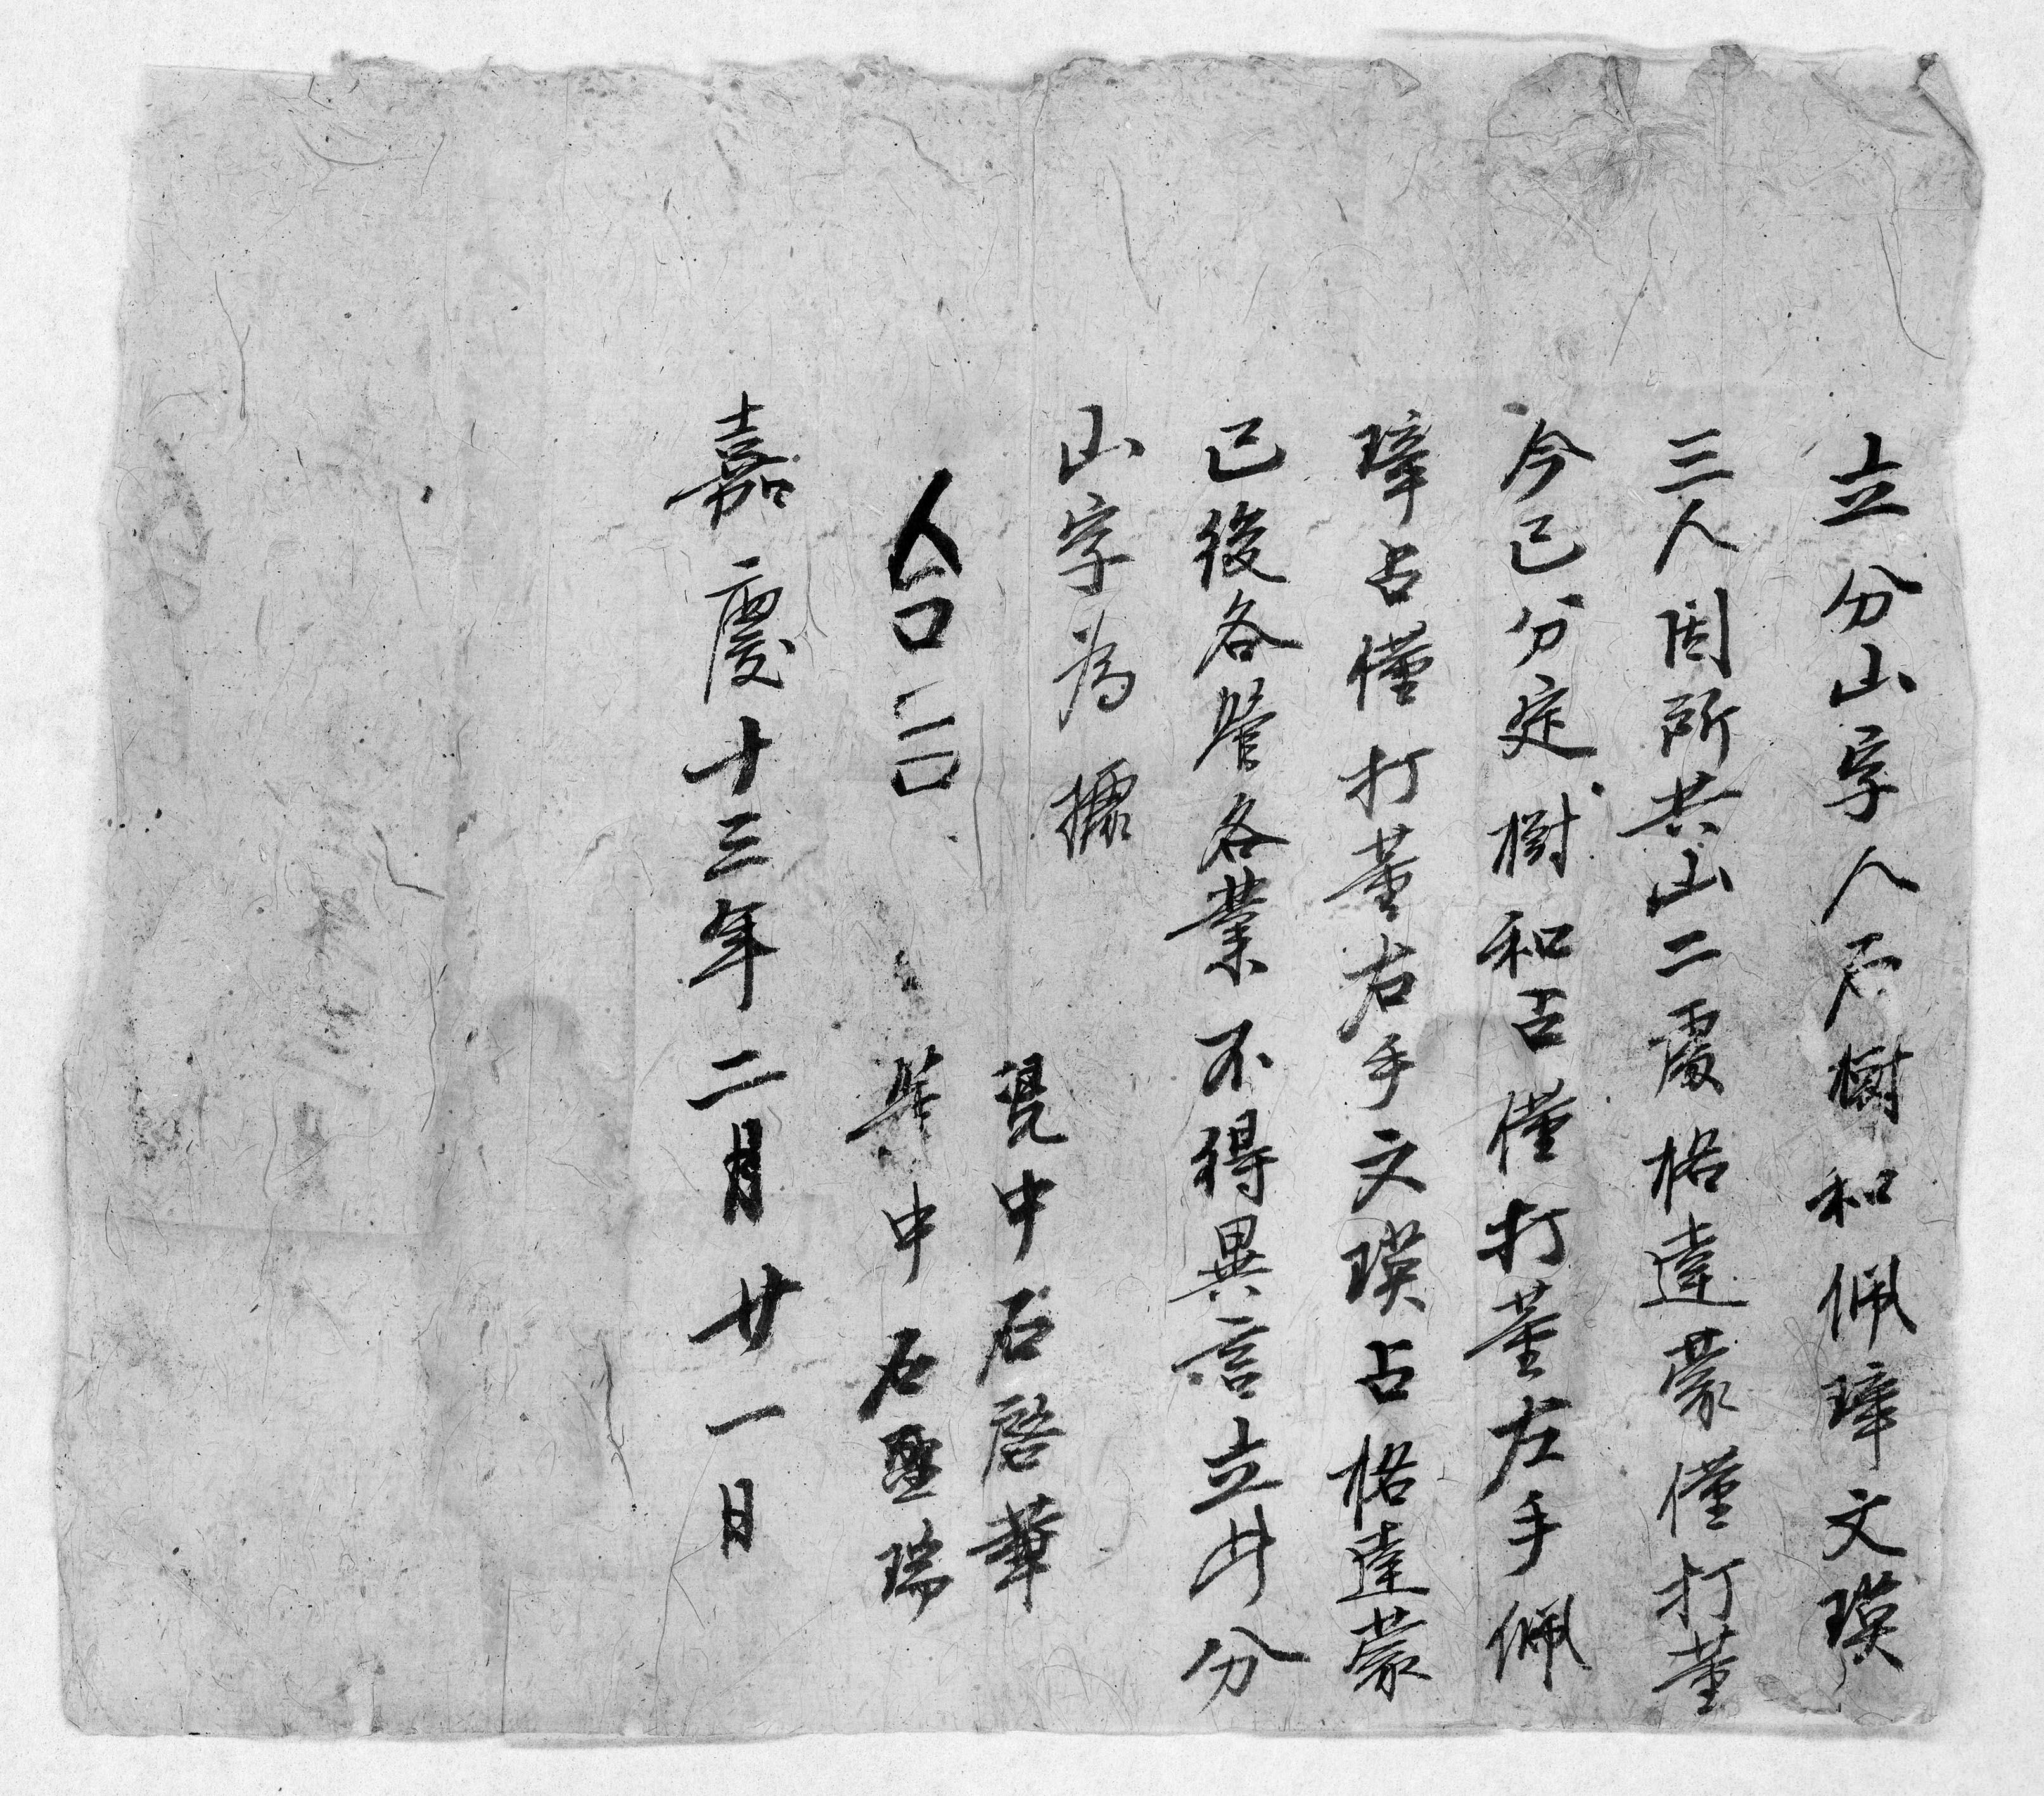 立分山字人石樹和佩璋文瑛
三人因所共山二處格達蒙僅打董
今已分定樹和占僅打董左手佩
璋占僅打董右手文瑛占格達蒙
已後各管各業不得異言立此分
山字為據
凭中石啓華
中石聖瑞
嘉慶十三年二月廿一日